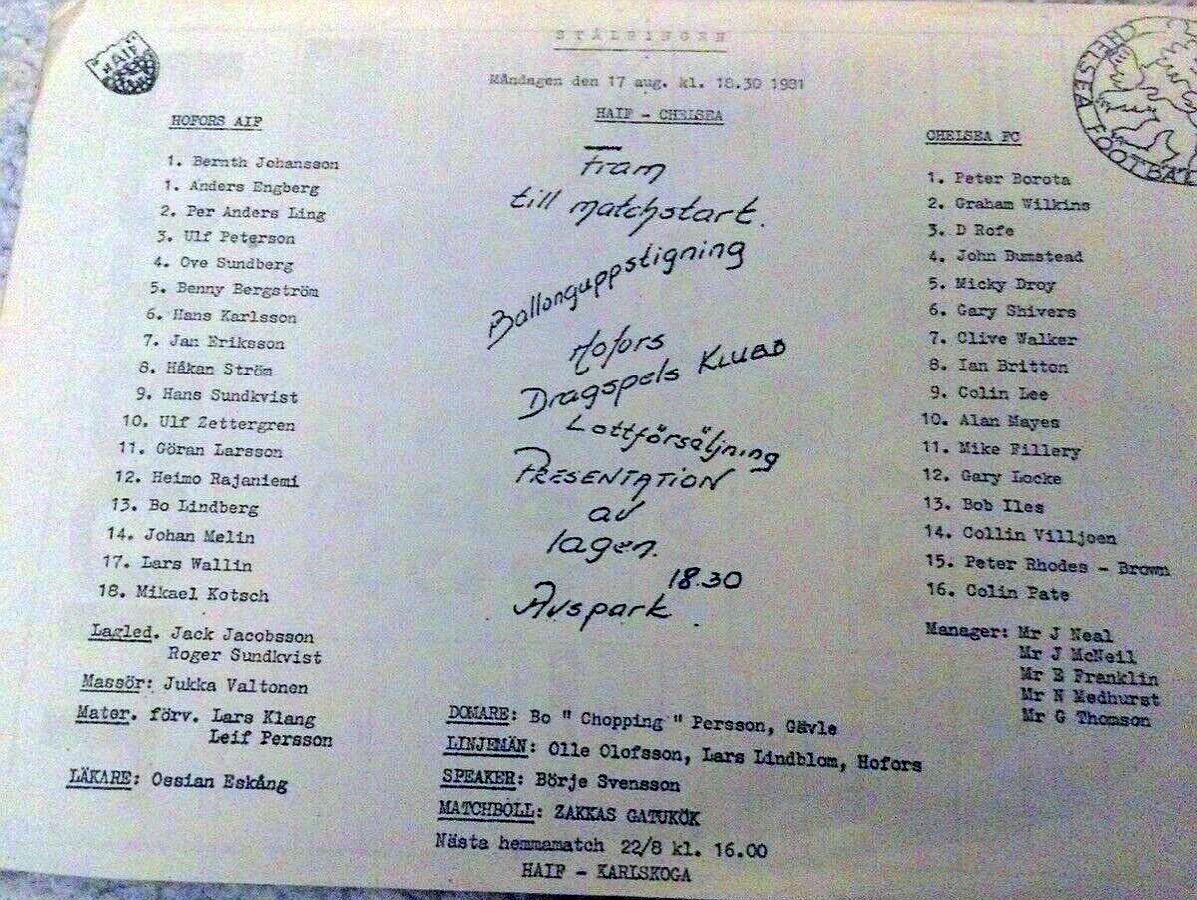 STÅLRINGEN
Måndagen den 17 aug. kl. 18.30 1981
HAIF - CHELSEA
HAIF
HOFORS AIF
1. Bernth Johansson
1. Anders Engberg
2. Per Anders Ling
3. Ulf Peterson
4. Ove Sundberg
5. Benny Bergström
6. Hans Karlsson
7. Jan Eriksson
8. Håkan Ström
9. Hans Sundkvist
10. Ulf Zettergren
11. Göran Larsson
12. Heimo Rajaniemi
13. Bo Lindberg
14. Johan Melin
17. Lars Wallin
18. Mikael Kotsch
Lagled. Jack Jacobsson
Roger Sundkvist
Massör: Jukka Valtonen
Mater. förv. Lars Klang
Leif Persson
LÄKARE: Ossian Eskång
Fram
till matchstart.
Ballonguppstigning
Hofors
Dragspels KLUBB
Lottförsäljning
PRESENTATION
av
lagen.
18.30
Avspark.
CHELSEA FOOTBAL
CHELSEA FC
1. Peter Borota
2. Graham Wilkins
3. D Rofe
4. John Bumstead
5. Micky Droy
6. Gary Shivers
7. Clive Walker
8. Ian Britton
9. Colin Lee
10. Alan Mayes
11. Mike Fillery
12. Gary Locke
13. Bob Iles
14. Collin Villjoen
15. Peter Rhodes - Brown
16. Colin Pate
Manager: Mr J Neal
Mr J McNeil
Mr E Franklin
Mr N Medhurst
Mr G Thomson
DOMARE: Bo " Chopping " Persson, Gävle
LINJEMÄN: Olle Olofsson, Lars Lindblom, Hofors
SPEAKER: Börje Svensson
MATCHBOLL: ZAKKAS GATUKÖK
Nästa hemmamatch 22/8 kl. 16.00
HAIF - KARLSKOGA